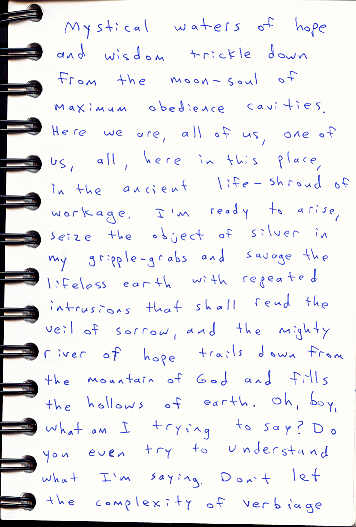 Mystical waters of hope
and wisdom trickle down
from the moon-soul of
maximum obedience cavities.
Here we are, all of us, one of
us, all, here in this place,
in the ancient life-shroud of
workage. I'm ready to arise,
seize the object of silver in
my gripple-grabs and savage the
lifeless earth with repeated
intrusions that shall rend the
veil of sorrow, and the mighty
river of hope trails down from
the mountain of God and fills
the hollows of earth. Oh, boy,
what am I trying to say? Do
you even try to understand
what I'm saying. Don't let
the complexity of verbiage